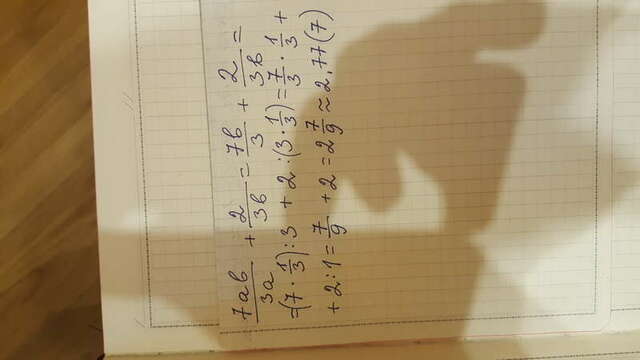 7ab/3a + 2/3b = 7b/3 + 2/3b =
=(7 · 1/3) : 3 + 2 : (3 · 1/3) = 7/3 · 1/3 +
+ 2 : 1 = 7/9 + 2 = 2 7/9 ≈ 2,77(7)